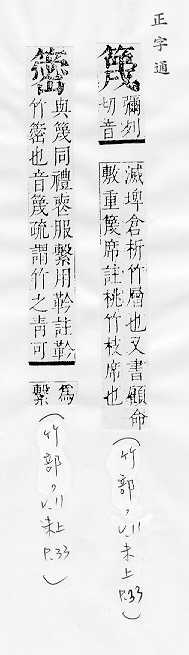 正字通
篾
彌列
切音
滅埤倉析竹層也又書顧命
敷重篾席註桃竹枝席也
(竹部, V.11 未上 P.33)
䈼
與篾同禮喪服繫用靲註靲
竹䈼也音篾疏謂竹之青可
爲
繫
(竹部, V.11 未上 P.33)